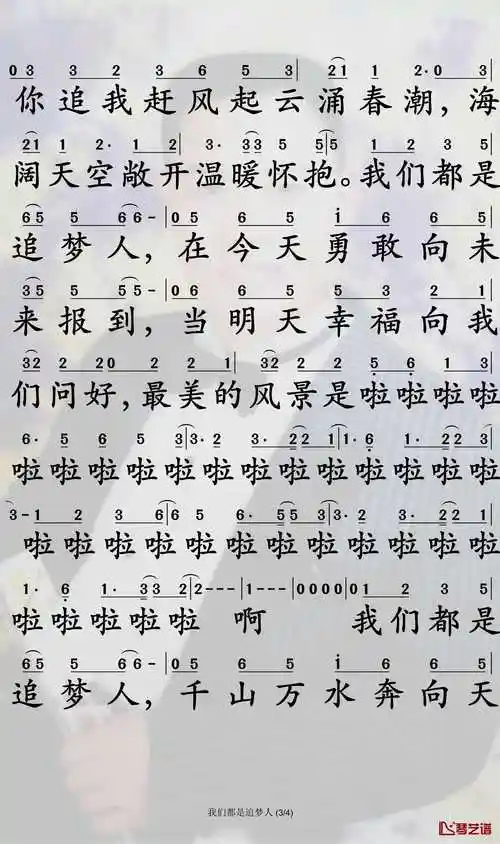 0 3 3 2 3 6 5 3 | 21 1 2· 0 3
你追我赶风起云涌春潮，海
21 1 2· 1 2 | 3· 33 5 5 | 5 5 5 5
阔天空敞开温暖怀抱。我们都是
65 5 66 - | 05 6 5 i 6 5
追梦人，在今天勇敢向未
35 5 55 - | 06 6 5 3 2 1
来报到，当明天幸福向我
32 2 20 2 2 1 | 32 2 2 5 6 1 3
们问好，最美的风景是啦啦啦啦
6· 5 6 5 3 | 3· 2 3· 22 1 | 1· 6 1· 22 3
啦啦啦啦啦啦啦啦啦啦啦啦啦
3 - 1 2 3 6 | 6 5 6· 55 3 | 3· 2 3· 22 1
啦啦啦啦啦啦啦啦啦啦啦啦
1· 6 1· 33 2 | 2 - - - | 1 - - - | 0000 | 01 2 3 5
啦啦啦啦啦 啊 我们都是
65 5 66 - | 05 6 5 i 6 5
追梦人，千山万水奔向天
我们都是追梦人 (3/4)
琴艺谱